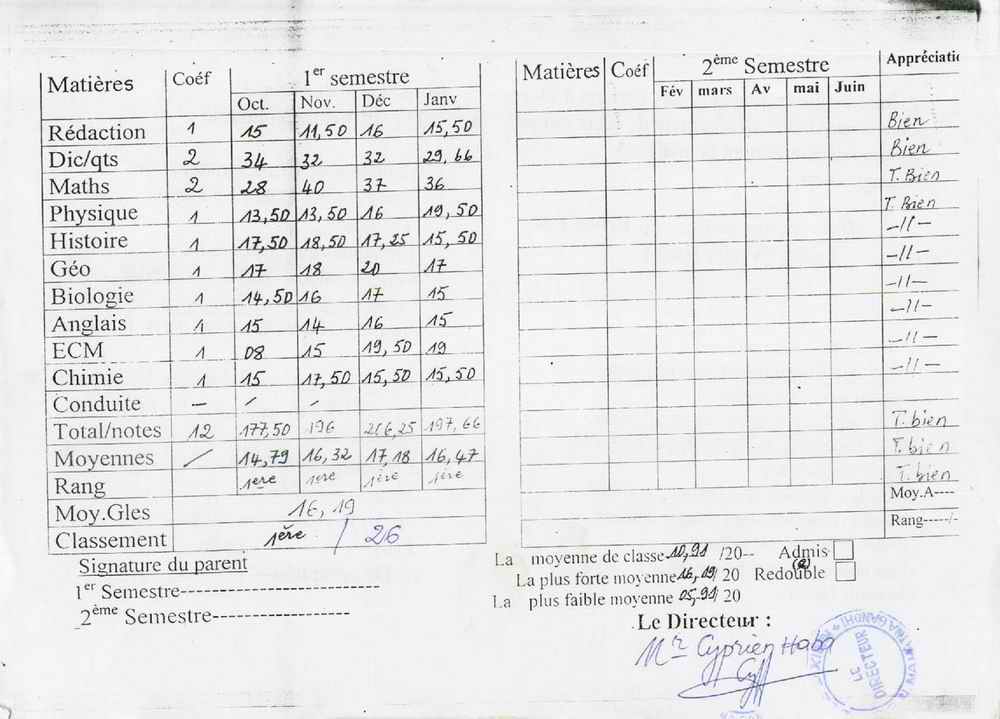 Matières Coéf 1er semestre
Oct. Nov. Déc Janv
Rédaction 1 15 11,50 16 15,50
Dic/qts 2 34 32 32 29,66
Maths 2 28 40 37 36
Physique 1 13,50 13,50 16 19,50
Histoire 1 17,50 18,50 17,25 15,50
Géo 1 17 18 20 17
Biologie 1 14,50 16 17 15
Anglais 1 15 14 16 15
ECM 1 08 15 19,50 19
Chimie 1 15 17,50 15,50 15,50
Conduite — / /
Total/notes 12 177,50 196 206,25 197,66
Moyennes / 14,79 16,32 17,18 16,47
Rang 1ère 1ère 1ère 1ère
Moy.Gles 16,19
Classement 1ère / 26
Signature du parent
1er Semestre--------------------------
2ème Semestre------------------
Matières Coéf 2ème Semestre Appréciatio
Fév mars Av mai Juin
Bien
Bien
T. Bien
T. Bien
-//-
-//-
-//-
-//-
-//-
-//-
T. bien
T. bien
T. bien
Moy.A----
Rang-----/-
La moyenne de classe 10,91 /20-- Admis
La plus forte moyenne 16,19/ 20 Redouble
La plus faible moyenne 05,91/ 20
Le Directeur :
Mr Cyprien Haba
LE
DIRECTEUR